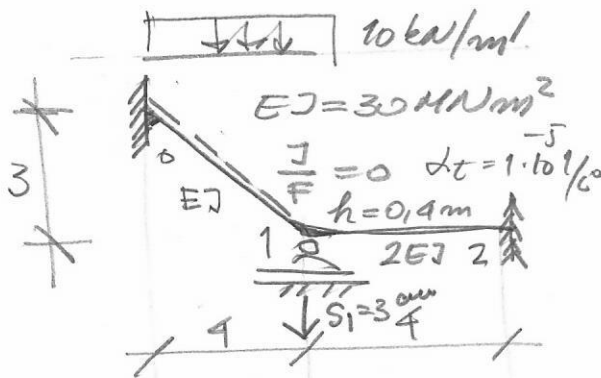 10 kN/m'
EJ=30MNm²
0
3
EJ
J/F=0
αt=1·10⁻⁵ 1/C°
h=0,4m
1
2EJ 2
S₁=3cm
4
4